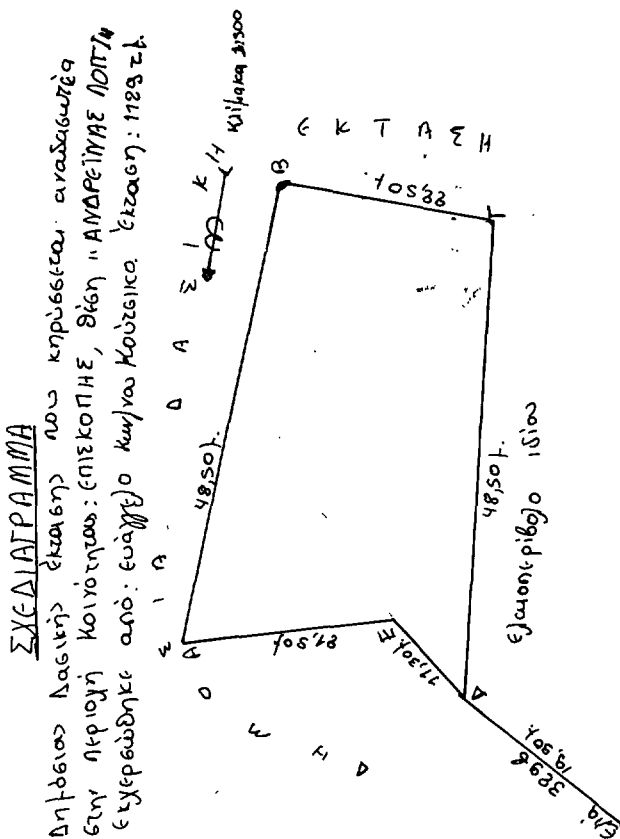 ΣΧΕΔΙΑΓΡΑΜΜΑ
Δημόσιας Δασικής έκτασης που κηρύσσεται αναδασωτέα
στην περιοχή Κοινότητας: ΕΠΙΣΚΟΠΗΣ, θέση "ΑΝΔΡΕΪΝΑΣ
εκχερσώθηκε από: Ευάγγελο Κων/νου Κούτσικο. Έκταση: 1129 τ.μ.
Κλίμακα 1:500
ΔΗΜΟΣΙΑ ΔΑΣΙΚΗ ΕΚΤΑΣΗ
Α
48,50μ.
Β
22,50μ
Γ
48,50μ.
Δ
11,30μ.
Ε
21,50μ
Ελαιοπερίβολο ιδίου
19,50μ.